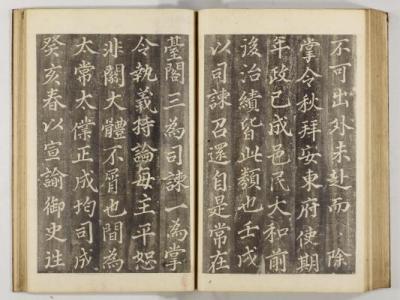 不可出外未赴而 除
掌令秋拜安東府使期
年政已成邑民大和前
後治績皆此類也壬戌
以司諫召還自是常在
臺閣三為司諫一為掌
令執義持論毎主平恕
非關大體不屑也間為
太常太僕正成均司成
癸亥春以宣諭御史往